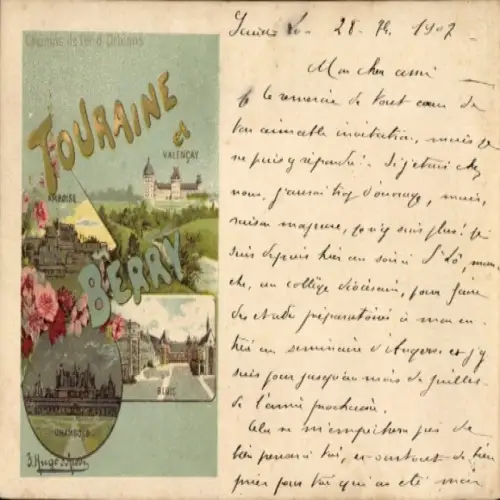 Chemins de fer d'Orléans
TOURAINE
et
VALENÇAY
AMBOISE
BERRY
BLOIS
CHAMBORD
28 1907
Mon cher ami
Je te remercie de tout cœur de
ton aimable invitation, mais je
ne puis y répondre. Si j'étais chez
nous, j'aurais trop d'ouvrage, mais,
raison majeure, je n'y suis plus! Je
suis depuis hier au soir à St Lô, man
che, au collège diocésain, pour faire
des études préparatoires à mon en
trée au séminaire d'Angers et j'y
suis pour jusqu'au mois de juillet
de l'année prochaine.
Cela ne m'empêchera pas de
bien penser à toi, et surtout de bien
prier pour toi qui as été mon